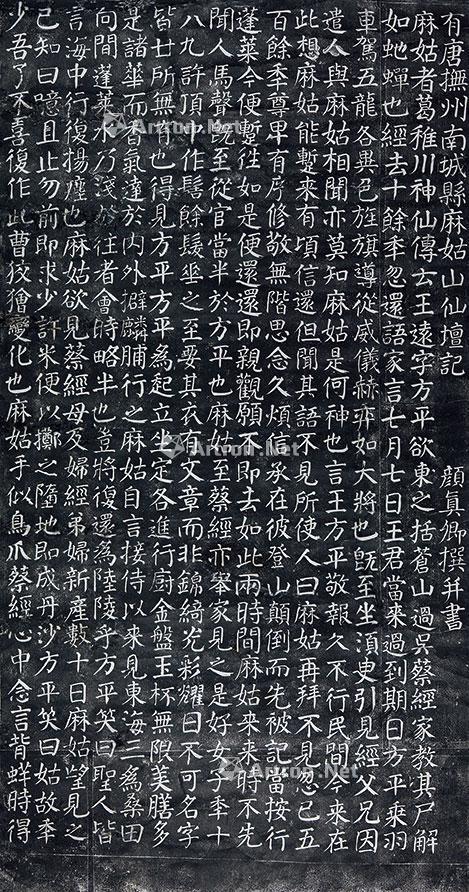 有唐撫州南城縣麻姑山仙壇記 顏真卿撰并書
麻姑者葛稚川神仙傳云王遠字方平欲東之括蒼山過吳蔡經家教其尸解
如蛇蟬也經去十餘年忽還語家言七月七日王君當來過到期日方平乘羽
車駕五龍各異色旌旗導從威儀赫弈如大將也既至坐須臾引見經父兄因
遣人與麻姑相聞亦莫知麻姑是何神也言王方平敬報久不行民間今來在
此想麻姑能蹔來有頃信還但聞其語不見所使人曰麻姑再拜不見忽已五
百餘年尊卑有序修敬無階思念久煩信承在彼登山顛倒而先被記當按行
蓬萊今便蹔往如是便還還即親觀願不即去如此兩時間麻姑來來時不先
聞人馬聲既至從官當半於方平也麻姑至蔡經亦舉家見之是好女子年十
八九許頂中作髻餘髮垂之至要其衣有文章而非錦綺光彩耀日不可名字
皆世所無有也得見方平方平為起立坐定各進行廚金盤玉杯無限美膳多
是諸華而香氣達於內外擗麟脯行之麻姑自言接侍以來見東海三為桑田
向間蓬萊水乃淺於往者會時略半也豈將復還為陸陵乎方平笑曰聖人皆
言海中行復揚塵也麻姑欲見蔡經母及婦經弟婦新產數十日麻姑望見之
已知曰噫且止勿前即求少許米便以擲之墮地即成丹沙方平笑曰姑故年
少吾了不喜復作此曹狡獪變化也麻姑手似鳥爪蔡經心中念言背蛘時得
Artron.Net
Artron.Net
Artron.Net
Artron.Net